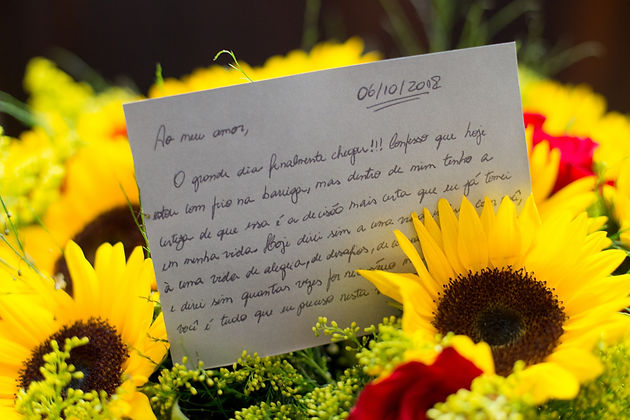 06/10/2018
Ao meu amor,
O grande dia finalmente chegou!!! Confesso que hoje
estou com frio na barriga, mas dentro de mim tenho a
certeza de que essa é a decisão mais certa que eu já tomei
em minha vida. Hoje direi sim a uma
à uma vida de alegria, de desafios, de
e direi sim quantas vezes for
você é tudo que eu preciso nesta